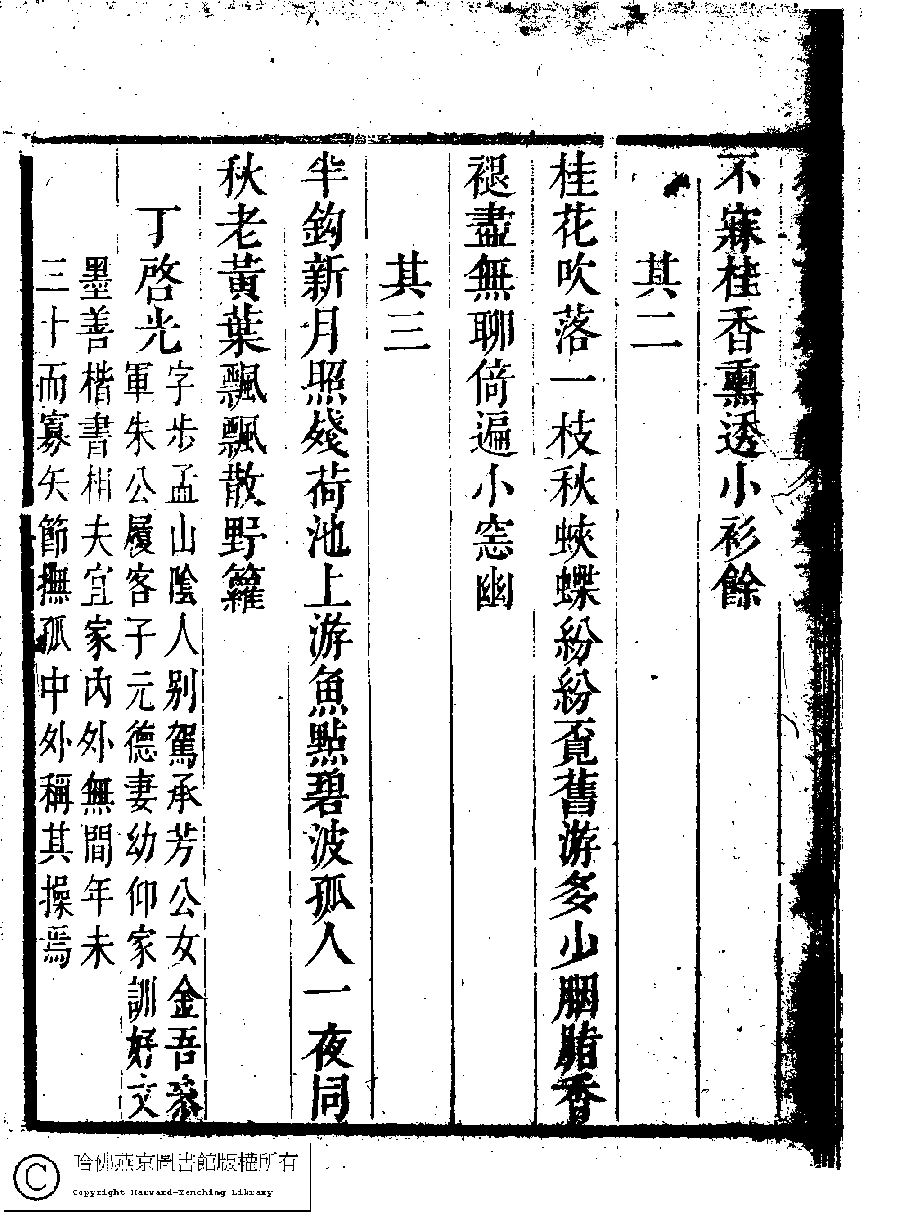 不寐桂香熏透小衫餘
其二
桂花吹落一枝秋蛺蝶紛紛覔舊游多少胭脂香
褪盡無聊倚遍小窓幽
其三
半鈎新月照殘荷池上游魚點碧波孤人一夜同
秋老黃葉飄飄散野籮
丁啓光
字步孟山陰人别駕承芳公女金吾叅
軍朱公履客子元德妻幼仰家訓好文
墨善楷書相夫宜家內外無間年未
三十而寡矢節撫孤中外稱其操焉
哈佛燕京圖書館版權所有
Copyright Harvard-Yenching Library